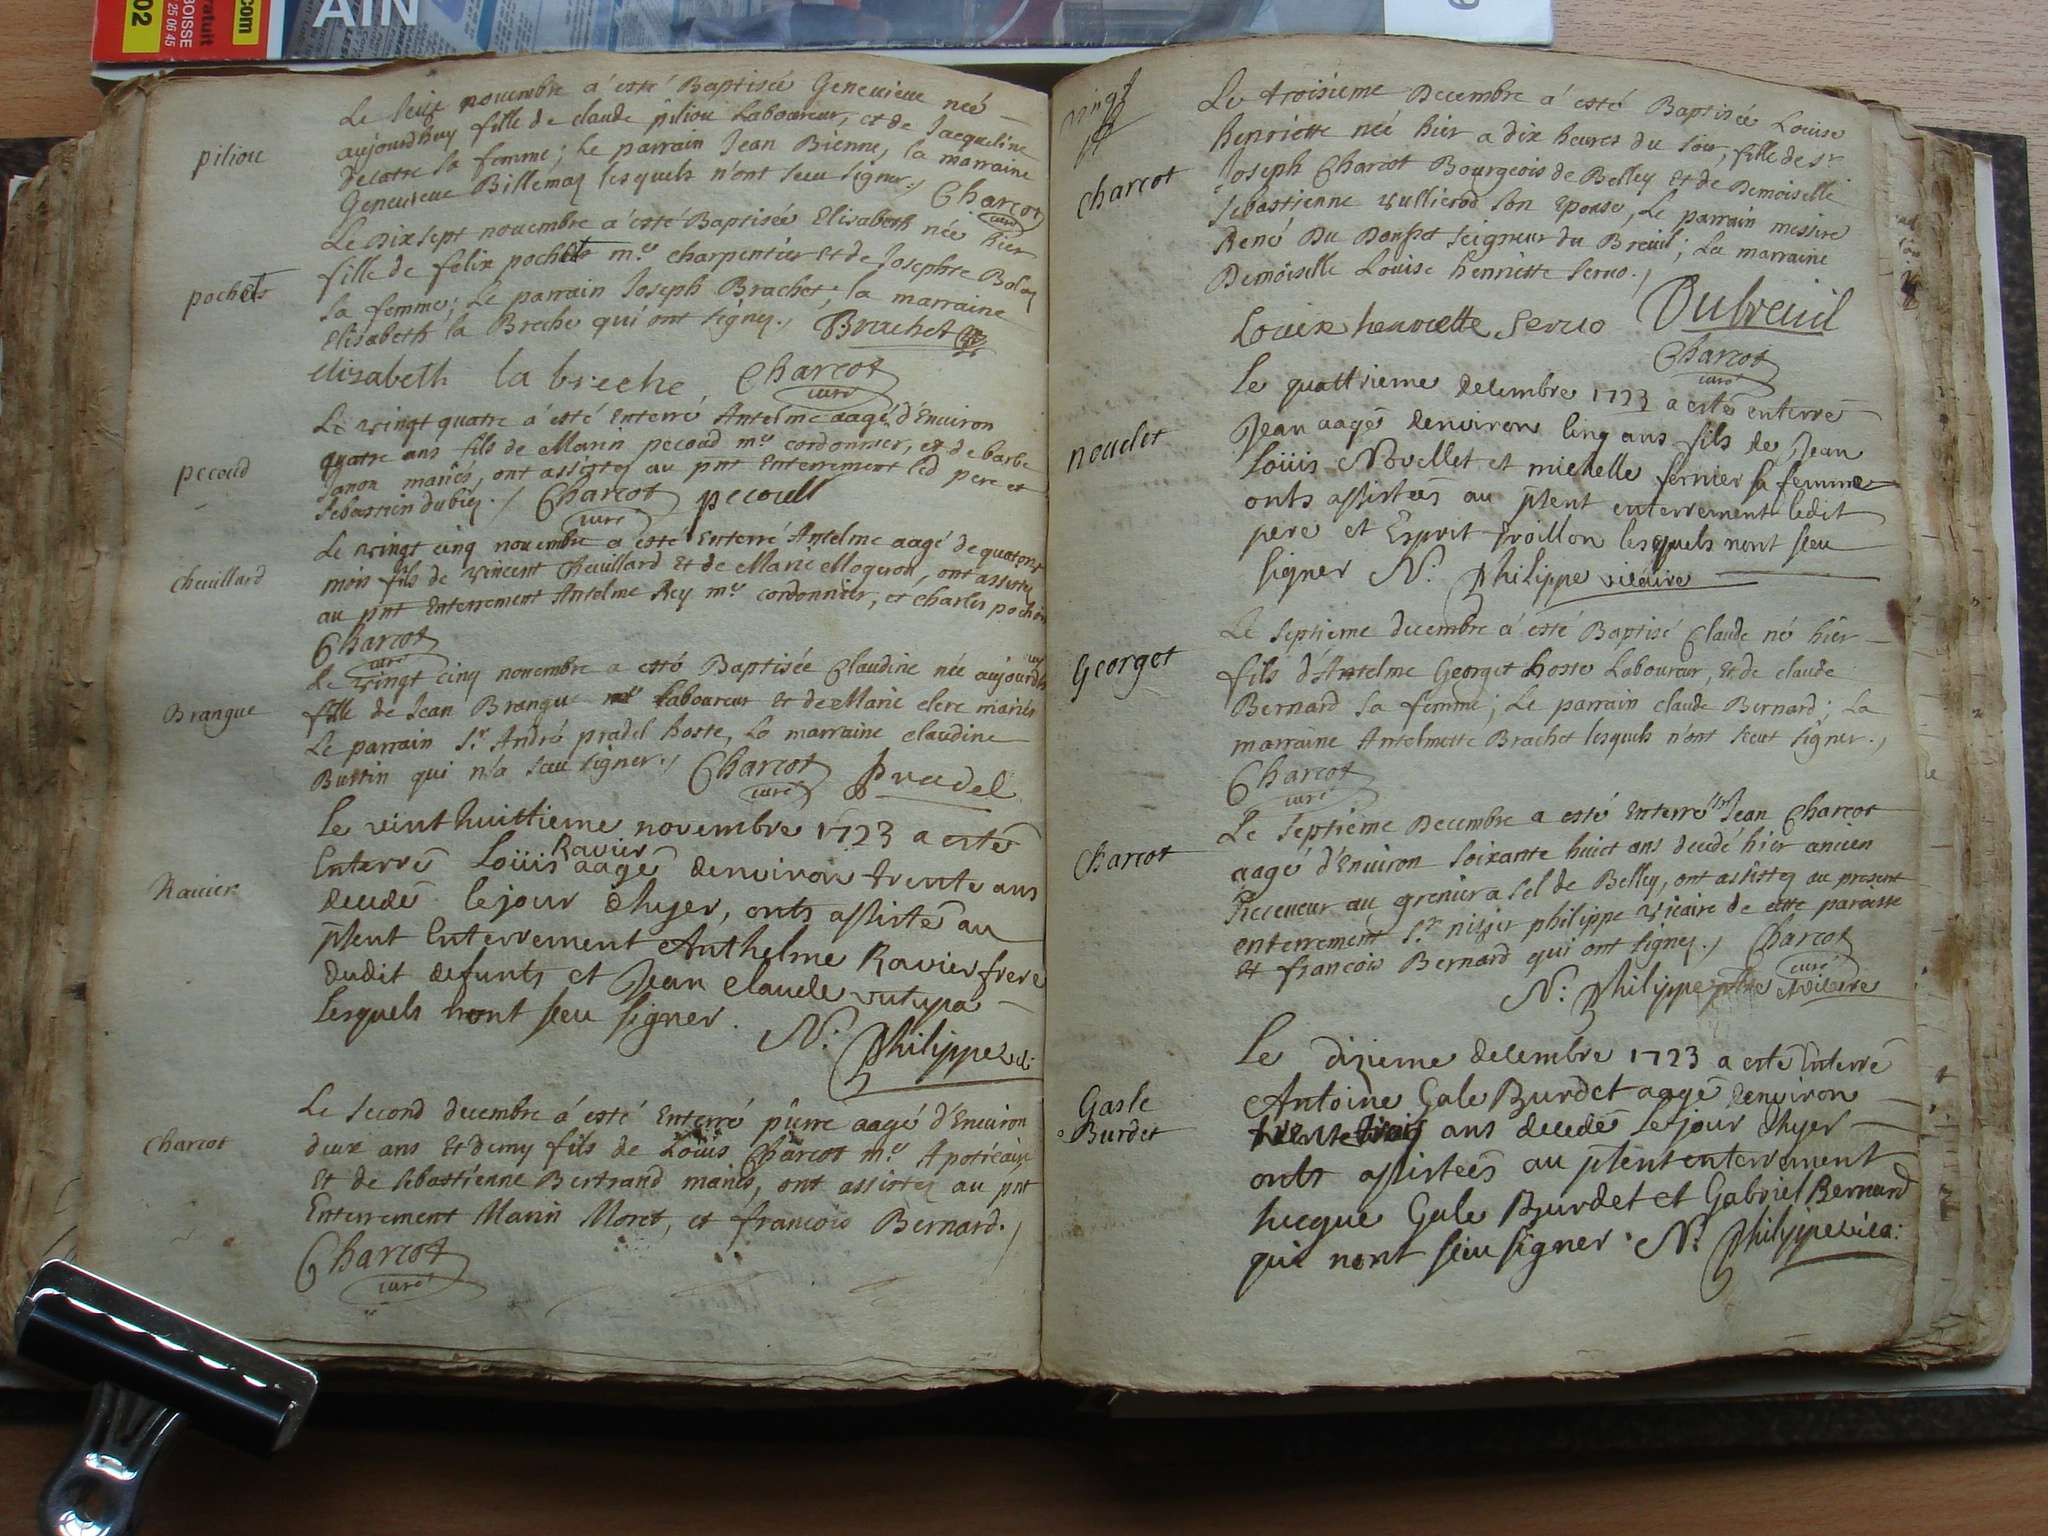 02
BOISE
25 06 45
ratuit
.com
AIN
piliou
Le seize novembre a esté Baptisée Genevieve neé
aujourdhuy fille de claude piliou Laboureur, et de Jacqueline
decotte sa femme; Le parrain Jean Bienne, la marraine
Genevieve Billemaz lesquels n'ont sceu signer./ Charcot
curé
Le Dix sept novembre a esté Baptisée Elisabeth neé hier
pochet
fille de felix pochet m.e charpentier et de Josephte
sa femme; Le parrain Joseph Brachet, la marraine
Elisabeth la Breche qui ont signez./ Brachet
elizabeth la breche Charcot
curé
pecoud
Le vingt quatre a esté Enterré Antelme aagé d'Environ
quatre ans fils de Marin pecoud m.e cordonnier, et de barbe
Janon mariés, ont assistez au pnt Enterrement led pere et
Sebastien dubiez./ Charcot pecoull
curé
chevillard
Le vingt cinq novembre a esté Enterré Antelme aagé de quatorze
mois fils de vincent Chevillard et de Marie Mogerod, ont assistez
au pnt Enterrement Antelme Rey m.e cordonnier, et charles pochet
Charcot
curé
Brangue
Le vingt cinq novembre a esté Baptisée Claudine neé aujourdhuy
fille de Jean Brangue laboureur et de Marie clerc mariés
Le parrain s.r André pradel hoste, La marraine claudine
Buttin qui n'a sceu signer./ Charcot Pradel
curé
Ravier
Le vint huittieme novembre 1723 a esté
Enterré Loüis Ravier aagé denviron trente ans
decedé le jour dhyer, onts assisté au
pñent Enterrement Anthelme Ravier frere
dudit defunts et Jean claude vutypa
lesquels nont sceu signer. N: Philippe vi:
charcot
Le second decembre a esté Enterré pierre aagé d'Environ
deux ans et demy fils de Louis Charcot m.e Apoticaire
et de sebastienne Bertrand mariés, ont assistez au pnt
Enterrement Marin Moret, et francois Bernard./
Charcot
curé
vingt
charcot
Le troisieme Decembre a esté Baptisée Louise
henriette neé hier a dix heures du soir, fille de s.r
Joseph Charcot Bourgeois de Belley et de Demoiselle
sebastienne vullierod son epouse, Le parrain messire
René Du Dousset seigneur du Breuil; La marraine
Demoiselle Louise henriette servo./
Louise henriette Servo Dubreuil
Charcot
curé
nouelet
Le quattrieme decembre 1723 a estés enterré
Jean aagés denviron cinq ans fils de Jean
Loüis Novellet et michelle fernier sa femme
onts assistées au pñent enterrement ledit
pere et Esprit troillon lesquels nont sceu
signer N: Philippe vicaire
Georget
Le septieme decembre a esté Baptisé Claude né hier
fils d'Antelme Georget hoste Laboureur, et de claude
Bernard sa femme; Le parrain claude Bernard; La
marraine Antelmette Brachet lesquels n'ont sceut signer./
Charcot
curé
Charcot
Le septieme Decembre a esté Enterré s.r Jean Charcot
aagé d'Environ soixante huict ans decedé hier ancien
Receveur au grenier a sel de Belley, ont assistez au present
enterrement s.r nisier philippe vicaire de cette paroisse
et francois Bernard qui ont signez./ Charcot
curé
N: Philippe ptre vicaire
Gasle
Burdet
Le dixieme decembre 1723 a esté Enterré
Antoine Gale Burdet aagé denviron
trente trois ans decedé le jour dhyer
onts assistées au pñent enterrement
hugue Gale Burdet et Gabriel Bernard
qui nont sceu signer. N: Philippe vica: